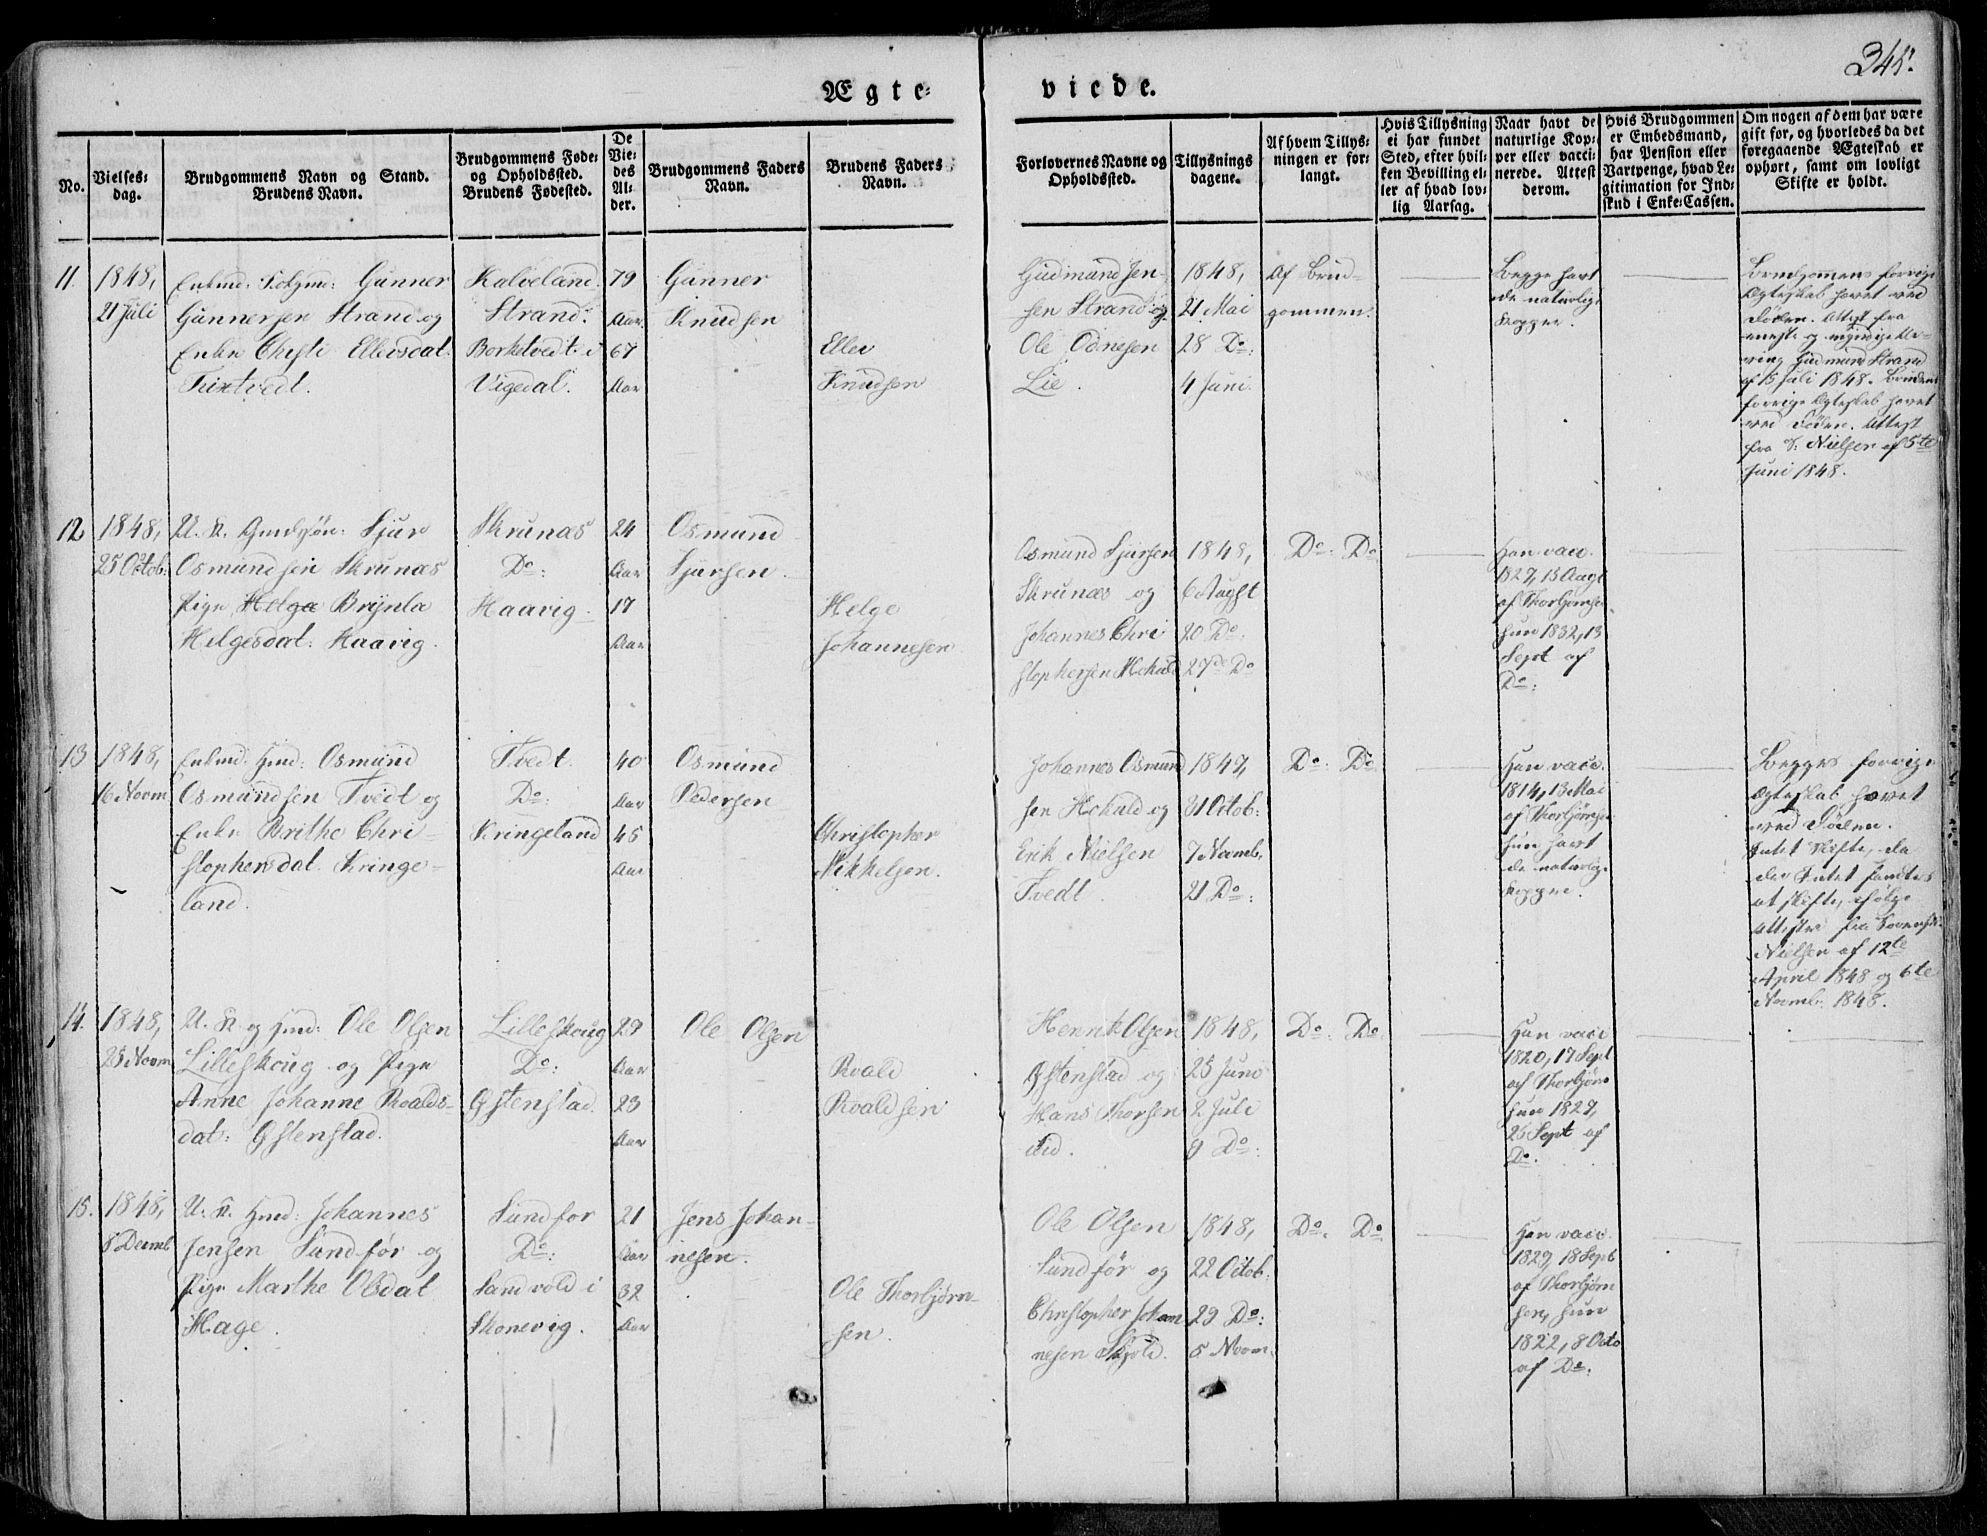 345.
Ægte-
viede.
No.
Vielses-
dag.
Brudgommens Navn og Stand.
Brudens Navn.
Brudgommens Føde-
og Opholdssted.
Brudens Fødested.
De
Vie-
des
Al-
der.
Brudgommens Faders
Navn.
Brudens Faders
Navn.
Forlovernes Navne og
Opholdssted.
Tillysnings
dagene.
Af hvem Tillys-
ningen er for-
langt.
Hvis Tillysning
ei har fundet
Sted, efter hvil-
ken Bevilling el-
ler af hvad lov-
lig Aarsag.
Naar havt de
naturlige Kop-
per eller vacci-
nerede. Attest
derom.
Hvis Brudgommen
er Embedsmand,
har Pension eller
Vartpenge, hvad Le-
gitimation for Ind-
skud i Enke-Cassen.
Om nogen af dem har være
gift for, og hvorledes da det
foregaaende Ægteskab er
ophørt, samt om lovligt
Skifte er holdt.
11.
1848,
21 Juli
Enkmd. Gunner
Gunnersen Strand og
Enke Chrsti Ellevsdat.
Kalveland.
Strand.
Borketvedt i
Vigedal.
79
Aar
67
Aar
Gunner
Knudsen
Ellev
Knudsen
Gudmund Jen-
sen Strand og
Ole Odnesen
Lie.
1848,
21 Mai
28 Do:
4 Juni.
Af Brud-
gommen.
Begge havt
de naturlige
Kopper.
Brudgommens forrige
Ægteskab hævet ved
Døden. Attest fra
eneste og myndige Ar-
ving Gudmund Strand
af 15 Juli 1848. Brudens
forrige Ægteskab hævet
ved Døden. Attest
fra S. Nielsen af 5te
Juni 1848.
12
1848,
25 Octob:
U. K. Gmdsøn: Sjur
Osmundsen Skrunæs
Pige Helga Brynla
Helgesdat: Haavig.
Skrunæs
Do:
Haavig
24
Aar
17
Aar
Osmund
Sjursen.
Helge
Johannesen
Osmund Sjursen
Skrunæs og
Johannes Chri
stophersen
1848,
6 Augst
20 Do:
27de Do
Do: Do
Han vacc.
1827, 13 Aug
af Thorbjørnsen
hun 1832, 13
Sept af
Do:
13
1848,
16 Novm
Enkmd. Gmd: Osmund
Osmundsen Tvedt og
Enke Brithe Chri-
stophersdat. Kringe-
land.
Tvedt.
Do:
Kringeland
40
Aar
45
Aar
Osmund
Pedersen
Christopher
Mikkelsen.
Johannes Osmund
sen og
Erik Nielsen
Tvedt.
1847,
31 Octob:
7 Novmb,
21 Do:
Do: Do
Han vacc.
1814, 13 Mai
af Thorbjørnsen
hun havt
de naturlige
Kopper.
Begges forrige
Ægteskab hævet
ved Døden.
Intet Skifte, da
der Intet fandtes
at skifte, ifølge
Attester fra
Nielsen af 12te
April 1848 og 6te
Novmb. 1848.
14.
1848,
25 Novm
U. K. og Gmd: Ole Olsen
Lilleskoug og Pige
Anne Johanne Roalds-
dat: Østenstad.
Lilleskoug
Do:
Østenstad.
29
Aar
23
Aar
Ole Olsen
Roald
Roaldsen
Henrik Olsen
Østenstad og
Hans Thorsen
1848,
25 Juni
2 Juli
9 Do:
Do: Do
Han vacc
1820, 17 Sept
af Thorbjørn
hun 1827,
26 Sept af
Do.
15.
1848,
8 Decmb
U. K. Gmd: Johannes
Jensen Sundfør og
Pige Marthe Olsdat
Hage.
Sundfør
Do:
Sandvold i
Skonevig.
21
Aar
32
Aar
Jens Johan-
nesen.
Ole Thorbjørn-
sen.
Ole Olsen
Sundfør og
Christopher Johan
nesen Skjold.
1848,
22 Octob:
29 Do:
5 Novm.
Do. Do
Han vacc.
1829, 18 Sept
af Thorbjørn
sen, hun
1822, 8 Octo
af Do: